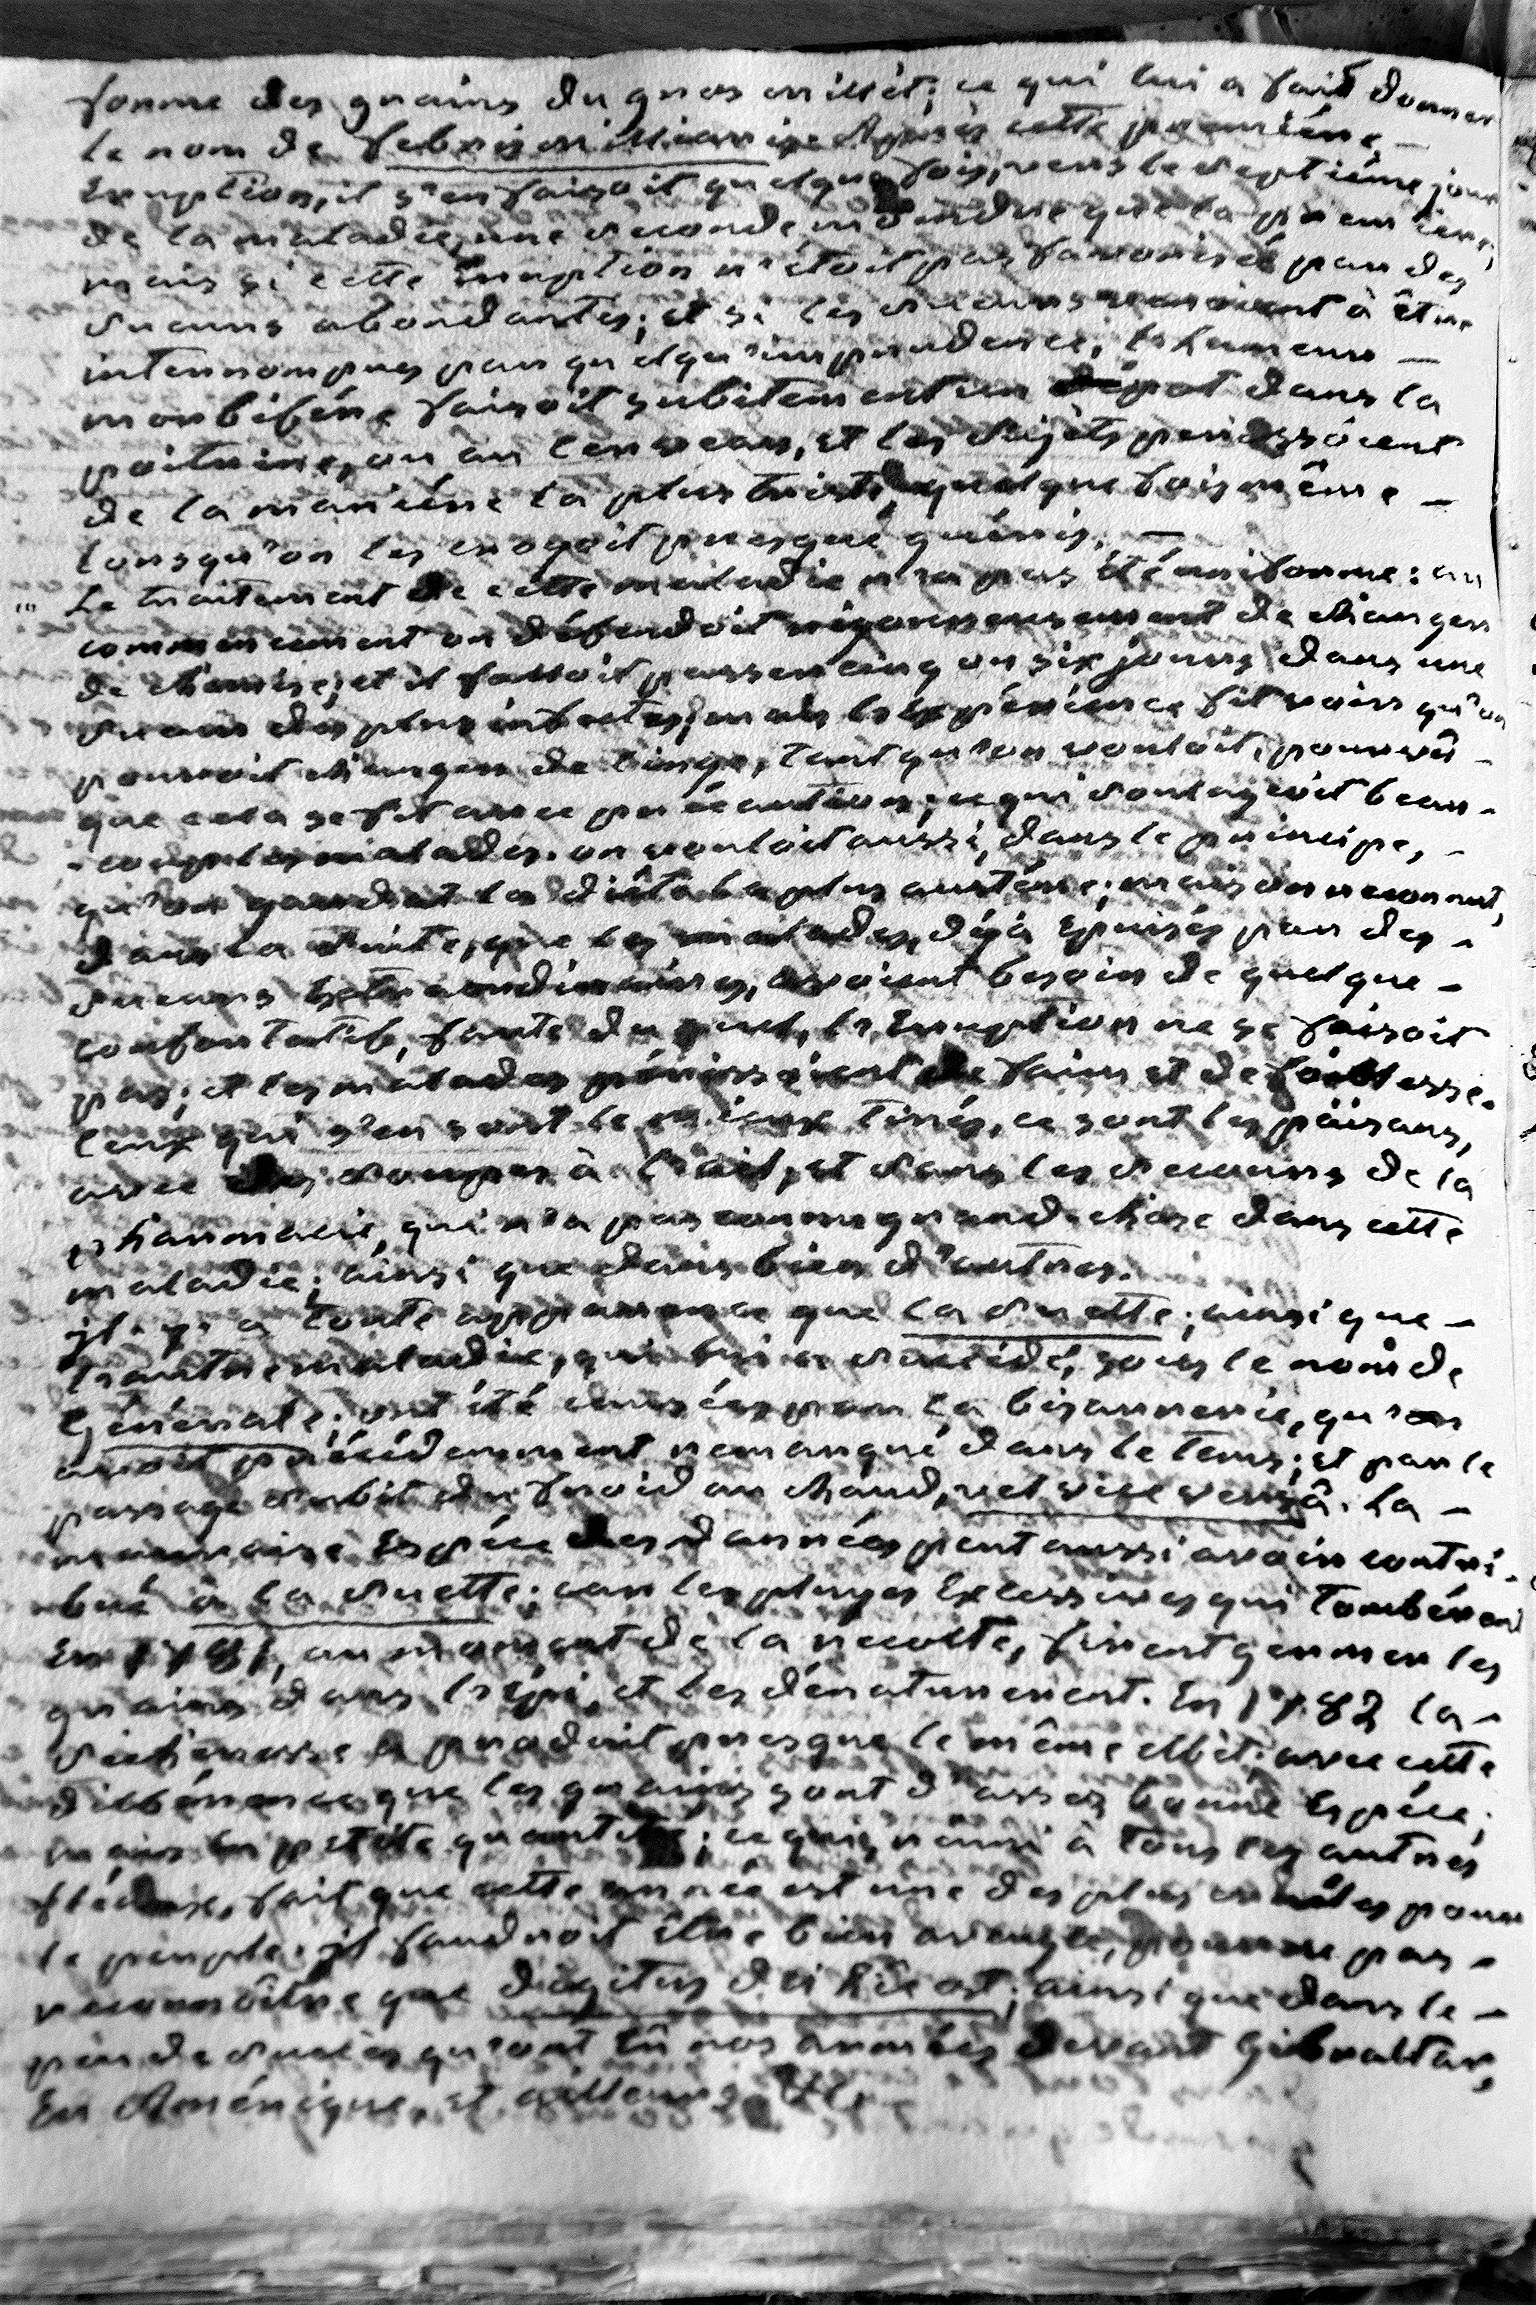 forme des grains du gros millét; ce qui lui a fait donner
le nom de febris milliaris. Après cette premiére
Eruption, il s'en faisoit quelque fois, vers le septiéme jour
de la maladie, une seconde, moindre que la premiere;
mais si cette Eruption n'étoit pas favorisée par des
sueurs abondantes; et si les sueurs venoient à être
interrompues par quelqu'imprudence, l'humeur
morbifére faisoit subitement un dépot dans la
poitrine, ou au Cerveau, et les sujéts perissoient
de la maniére la plus triste, quelque fois même
lorsqu'on les croyoit presque guéris.
Le traitement de cette maladie n'a pas été uniforme: au
commencement on défendoit rigoureusement de changer
de chemise; et il falloit passer cinq ou six jours dans une
sueur des plus infectes; mais l'expérience fit voir qu'on
pouvoit changer de linge, tant qu'on vouloit, pourvû
que cela se fit avec précaution; ce qui soulageoit beau-
-coup les malades. on vouloit aussi, dans le principe,
qu'on gardat la diéte la plus austére; mais on reconnut,
dans la suite, que les malades, déjà Epuisés par des
sueurs Extraordinaires, avoient besoin de quelque
confortatif, faute du quel, l'Eruption ne se faisoit
pas; et les malades périssoient de faim et de foiblesse.
Ceux qui s'en sont le mieux tirés, ce sont les païsans,
avec des soupes à l'ail, et sans les secours de la
pharmacie, qui n'a pas connu grand chose dans cette
maladie; ainsi que dans bien d'autres.
jl y a toute apparence que la suette; ainsi que
l'autre maladie, qui lui a succédé, sous le nom de
Générale; ont été causées par la bisarrerie, qu'on
avoit précédemment remarqué dans le tems; et par le
passage subit du froid au chaud, vel vice versâ. La
mauvaise Espéce des dannées peut aussi avoir contri-
bué à la suette; car les pluyes Excessives qui tombérent
En 1781, au moment de la récolte, firent germer les
grains dans l'épi, et les dénaturerent. En 1782 la
sécheresse a produit presque le même effét: avec cette
différence que les grains sont d'assez bonne Espéce;
mais En petite quantité; ce qui, réuni à tous les autres
fléaux, fait que cette année est une des plus cruelles pour
le peuple. jl faudroit être bien aveugle, pour ne pas
reconnoître que digitus dei hîc est; ainsi que dans le
peu de succès qu'ont Eû nos armées devant Gibraltar,
En Amérique, et ailleurs &c.